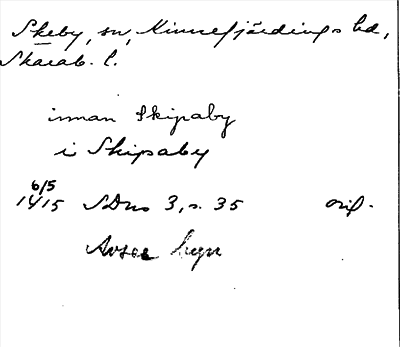 Skeby, sn, Kinnefjärdings hd,
Skarab. l.
innan Skipaby
i Skipsaby
6/5
1415 SDns 3, s. 35 orig.
Avser byn